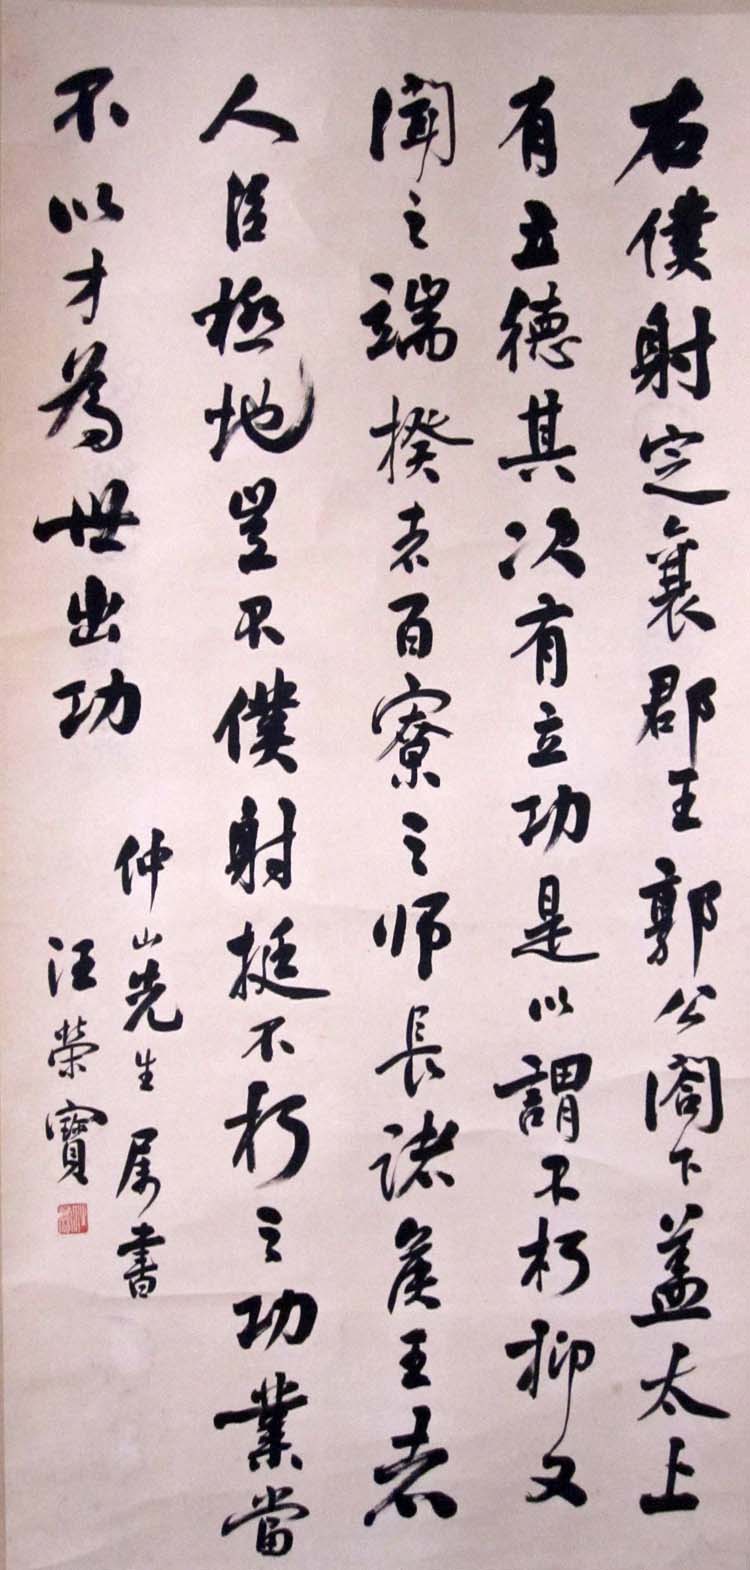 右僕射定襄郡王郭公閤下蓋太上
有立德其次有立功是以謂不朽抑又
聞之端揆者百寮之師長諸侯王者
人臣極地豈不僕射挺不朽之功業當
不以才為世出功
仲山先生属書
汪榮寶